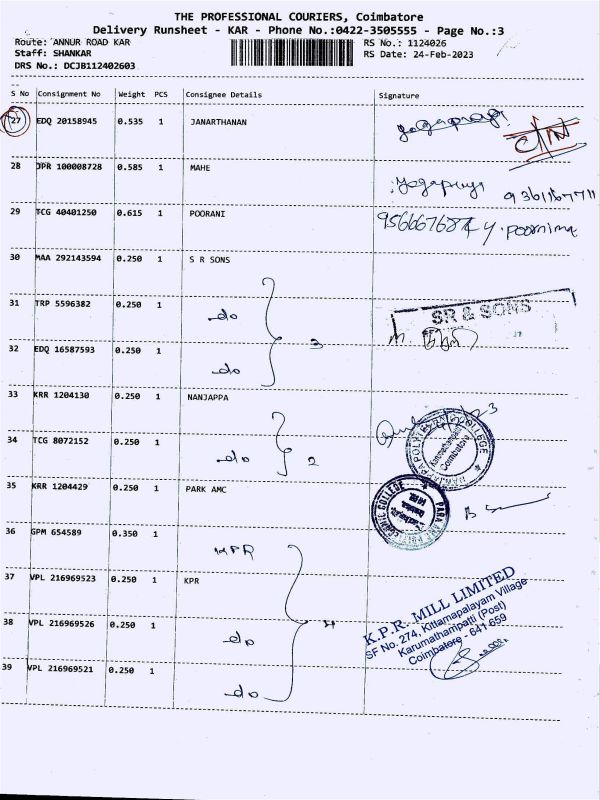 THE PROFESSIONAL COURIERS, Coimbatore
Delivery Runsheet - KAR - Phone No.:0422-3505555 - Page No.:3
Route: ANNUR ROAD KAR RS No.: 1124026
Staff: SHANKAR RS Date: 24-Feb-2023
DRS No.: DCJB112402603
S No Consignment No Weight PCS Consignee Details Signature
27 EDQ 20158945 0.535 1 JANARTHANAN
28 JPR 100008728 0.585 1 MAHE
29 TCG 40401250 0.615 1 POORANI y. poornima
30 MAA 292143594 0.250 1 S R SONS
31 TRP 5596382 0.250 1 do SR & SONS
32 EDQ 16587593 0.250 1 do 3
33 KRR 1204130 0.250 1 NANJAPPA
34 TCG 8072152 0.250 1 do 2
NANJAPPA POLYTECHNIC COLLEGE
Karumathampatti
Coimbatore
35 KRR 1204429 0.250 1 PARK AMC
36 GPM 654589 0.350 1 KPR
37 VPL 216969523 0.250 1 KPR
38 VPL 216969526 0.250 1 do 4
39 VPL 216969521 0.250 1 do
K.P.R. MILL LIMITED
SF No. 274, Kittampalayam Village
Karumathampatti (Post)
Coimbatore - 641 659